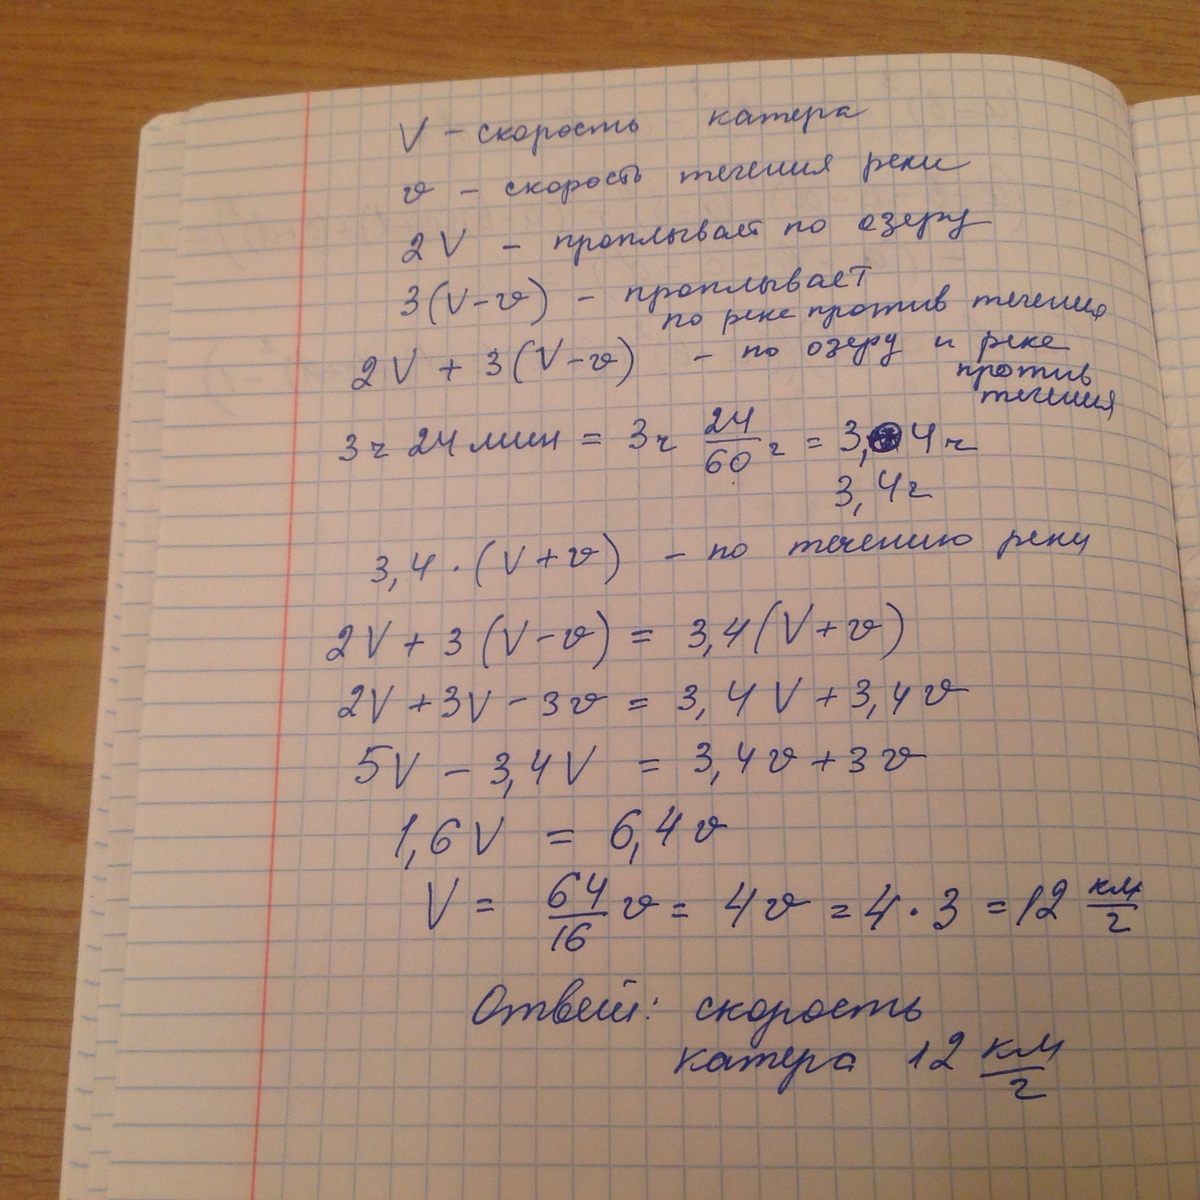 V – скорость катера
v – скорость течения реки
2V – проплывает по озеру
3(V-v) – проплывает
по реке против течения
2V + 3(V-v) – по озеру и реке
против
течения
3ч 24 мин = 3ч 24/60 ч = 3,4ч
3,4ч
3,4 · (V+v) – по течению реки
2V + 3(V-v) = 3,4(V+v)
2V + 3V - 3v = 3,4V + 3,4v
5V - 3,4V = 3,4v + 3v
1,6V = 6,4v
V = 64/16 v = 4v = 4 · 3 = 12 км/ч
Ответ: скорость
катера 12 км/ч